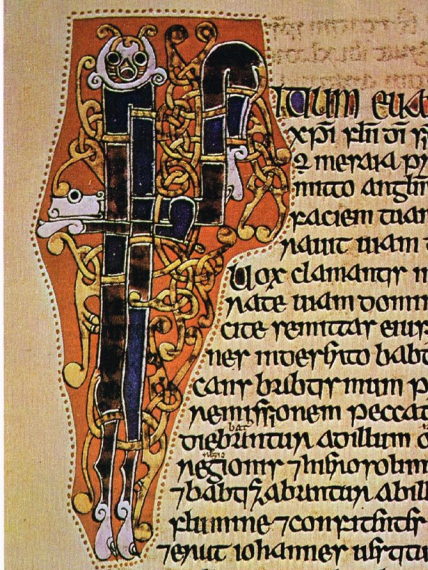 INITIUM eua
xpi filii di
in esaia pr
mitto anghe
faciem tuam
rauit uiam t
Uox clamantis in
rate uiam domin
cite semitas eius
nes in deserto babt
cans babtismum p
remissionem peccat
diebantur ad illum o
regionis 7
7 babtizabantur ab ill
flumine 7 confitentes
7 erat iohannes uestitus